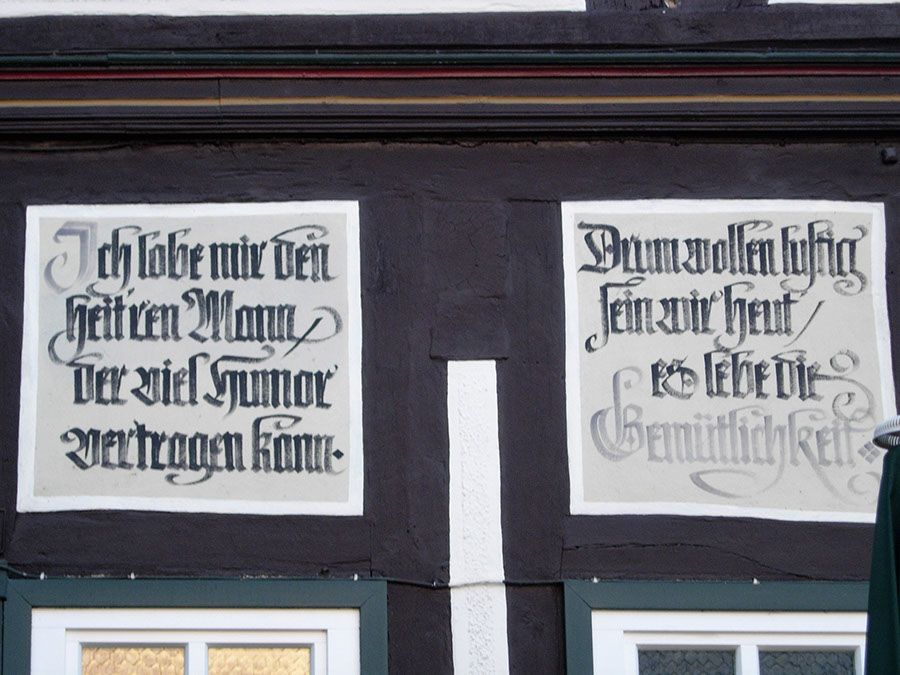 Ich lobe mir den
heit'ren Mann,
der viel Humor
vertragen kann.
Drum wollen lustig
sein wir heut,
es lebe die
Gemütlichkeit